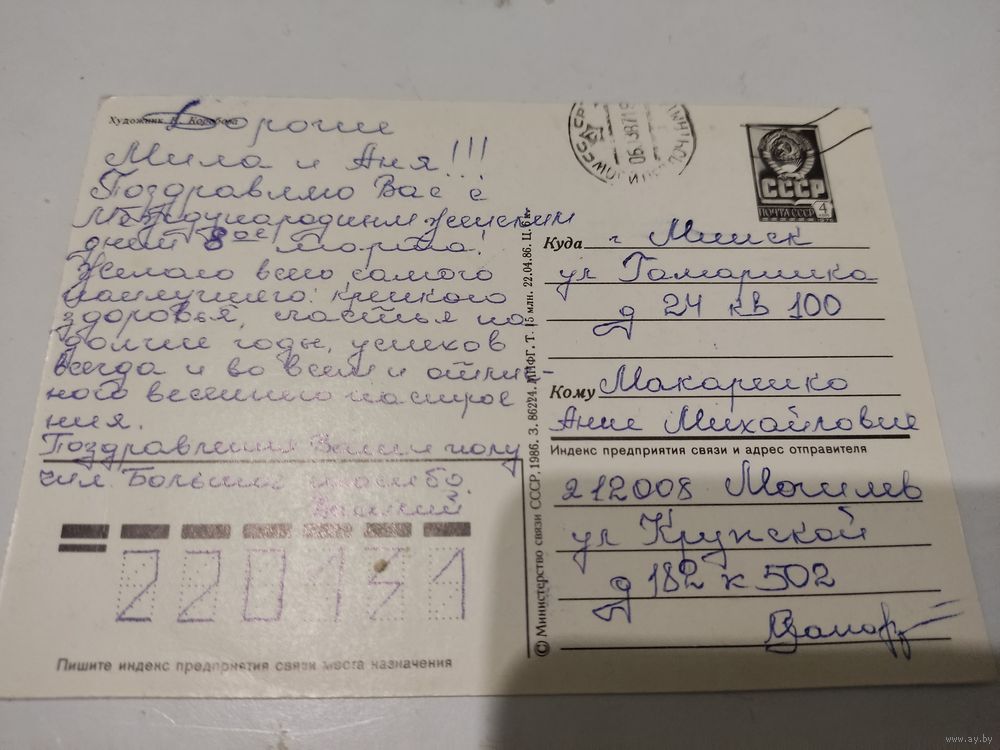 Художник К. Коробова
Дорогие
Мила и Аня!!!
Поздравляю Вас с
Международным женским
днем 8ое марта!
Желаю всего самого
наилучшего: крепкого
здоровья, счастья на
долгие годы, успехов
всегда и во всем и отлич-
ного весеннего настрое
ния.
Поздравления Ваши полу
чил. Большое спасибо.
220131
Пишите индекс предприятия связи места назначения
© Министерство связи СССР, 1986. З. 86224. ППФГ. Т. 15 млн. 22.04.86. Ц. 6 к.
СССР
ПОЧТА СССР 4
Куда г Минск
ул Гамарника
д 24 кв 100
Кому Макаренко
Анне Михайловне
Индекс предприятия связи и адрес отправителя
212008 Могилев
ул Крупской
д 182 к 502
www.ay.by